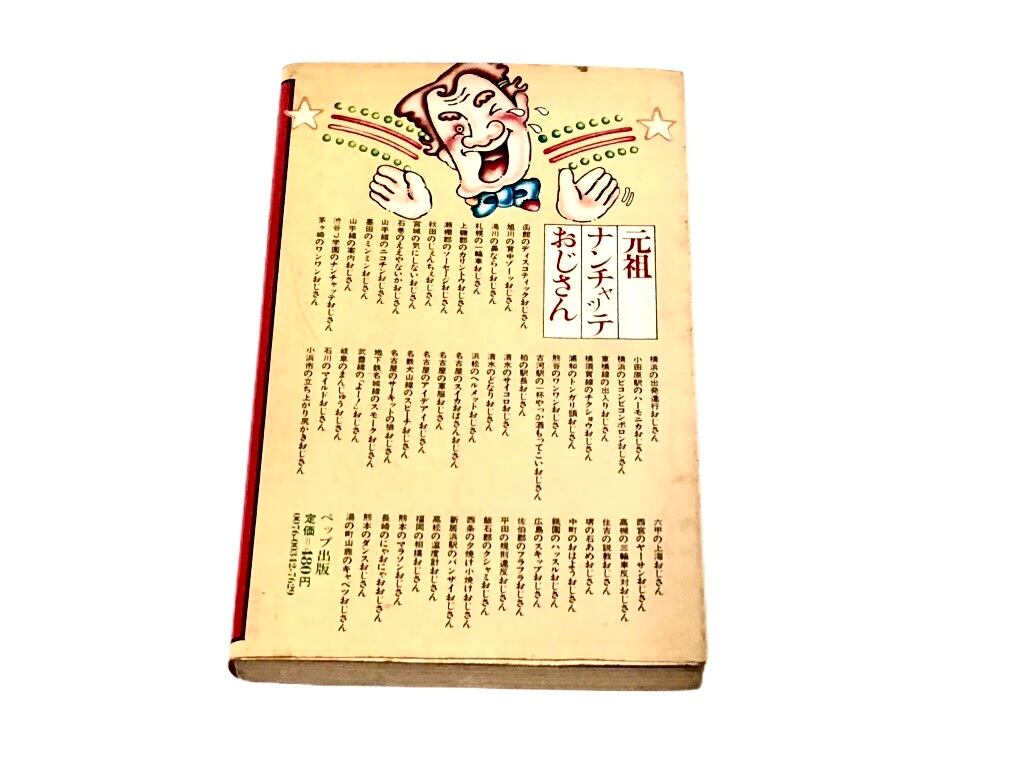 元祖
ナンチャッテ
おじさん
函館のディスコティックおじさん
旭川の背中ゾーッおじさん
滝川の鼻ならしおじさん
札幌の一輪車おじさん
上磯郡のカリントウおじさん
瀬棚郡のソーセージおじさん
秋田のじぇんちぇおじさん
宮城の気にしないおじさん
石巻のええやないかおじさん
山手線のニコチンおじさん
墨田のミンミンおじさん
山手線の案内おじさん
渋谷J学園のナンチャッテおじさん
茅ヶ崎のワンワンおじさん
横浜の出発進行おじさん
小田原駅のハーモニカおじさん
横浜のピョンピョンポロンおじさん
東横線の出入りおじさん
横須賀線のチクショウおじさん
浦和のトンガリ頭おじさん
熊谷のワンワンおじさん
古河駅の一杯やっか酒もってこいおじさん
柏の駅長おじさん
清水のサイコロおじさん
清水のどなりおじさん
浜松のヘルメットおじさん
名古屋のスイカおばさんおじさん
名古屋の軍服おじさん
名古屋のアイデアイおじさん
名鉄犬山線のスピーチおじさん
名古屋のサーキットの狼おじさん
地下鉄名城線のスモークおじさん
武豊線の「よー！」おじさん
岐阜のまんじゅうおじさん
石川のマイルドおじさん
小浜市の立ち上がり尻かきおじさん
六甲の上海おじさん
西宮のヤーサンおじさん
高槻の三輪車反対おじさん
住吉の説教おじさん
堺の石あめおじさん
中町のおはようおじさん
祇園のハッスルおじさん
広島のスキップおじさん
佐伯郡のフラフラおじさん
平田の規則違反おじさん
飯石郡のクシャミおじさん
西条の夕焼け小焼けおじさん
新居浜駅のバンザイおじさん
高松の温度計おじさん
福岡の相撲おじさん
熊本のマラソンおじさん
長崎のにゃおにゃおおじさん
熊本のダンスおじさん
湯の町山鹿のキャベツおじさん
ペップ出版
定価＝480円
0076-00342-7629